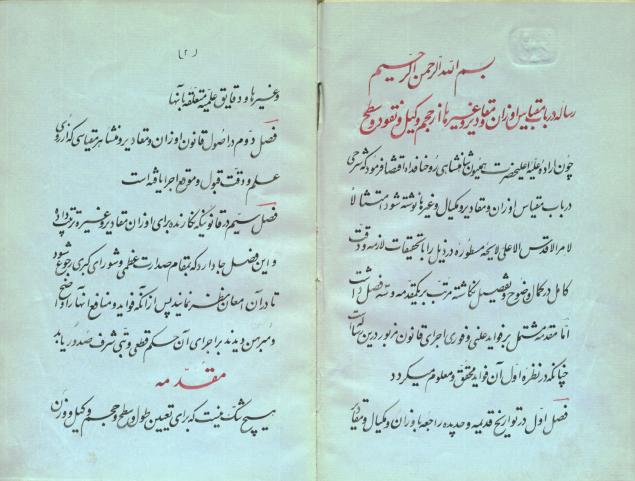 بسم الله الرحمن الرحیم
رساله در باب مقیاس اوزان و مقادیر و غیرها از حجم و کیل و نقود و سطح
چون اراده علیه اعلیحضرت همیون شاهنشاهی روحنا فداه اقتضا فرمود که شرحی
در باب مقیاس اوزان و مقادیر و مکیال و غیرها نوشته شود امتثالا
لامر الاقدس الاعلی لایحه مسطوره در ذیل را با تحقیقات لازمه و دقت
کامل در کمال وضوح و تفصیل نگاشته مرتب بر یکمقدمه و سه فصل داشت
اما مقدمه مشتمل بر فواید علمی و فوری اجرای قانون مزبور درین رساله است
چنانکه در نظره اول آن فواید محقق و معلوم میگردد
فصل اول در تواریخ قدیمه و جدیده راجعه باوزان و مکیال و مقادیر
(۲)
و غیرها و دقایق علمیه متعلقه بآنها
فصل دوم در اصول قانون اوزان و مقادیر و منشاء هر مقیاسی که از روی
علم و دقت قبول و موقع اجرا یافته است
فصل سیم در قانونیکه نگارنده برای اوزان مقادیر و غیره ترتیب داده
و این فصل جا دارد که بمقام صدارت عظمی و شورای کبری رجوع شود
تا در آن امعان نظر نمایند پس از آنکه فواید و منافع آنها را واضح
و مبرهن دیدند بر اجرای آن حکم قطعی و تبی شرف صدور یابد
مقدمه
هیچ شک نیست که برای تعیین طول و سطح و حجم و کیل و وزن